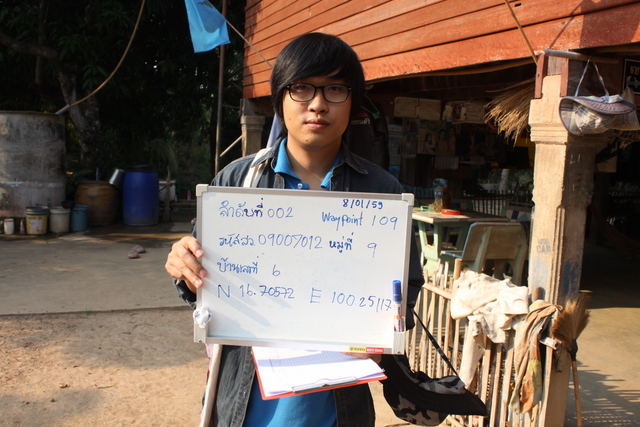 8/01/59
ลำดับที่ 002 Waypoint 109
รหัสสว 09007012 หมู่ที่ 9
บ้านเลขที่ 6
N 16.70572 E 100.25117